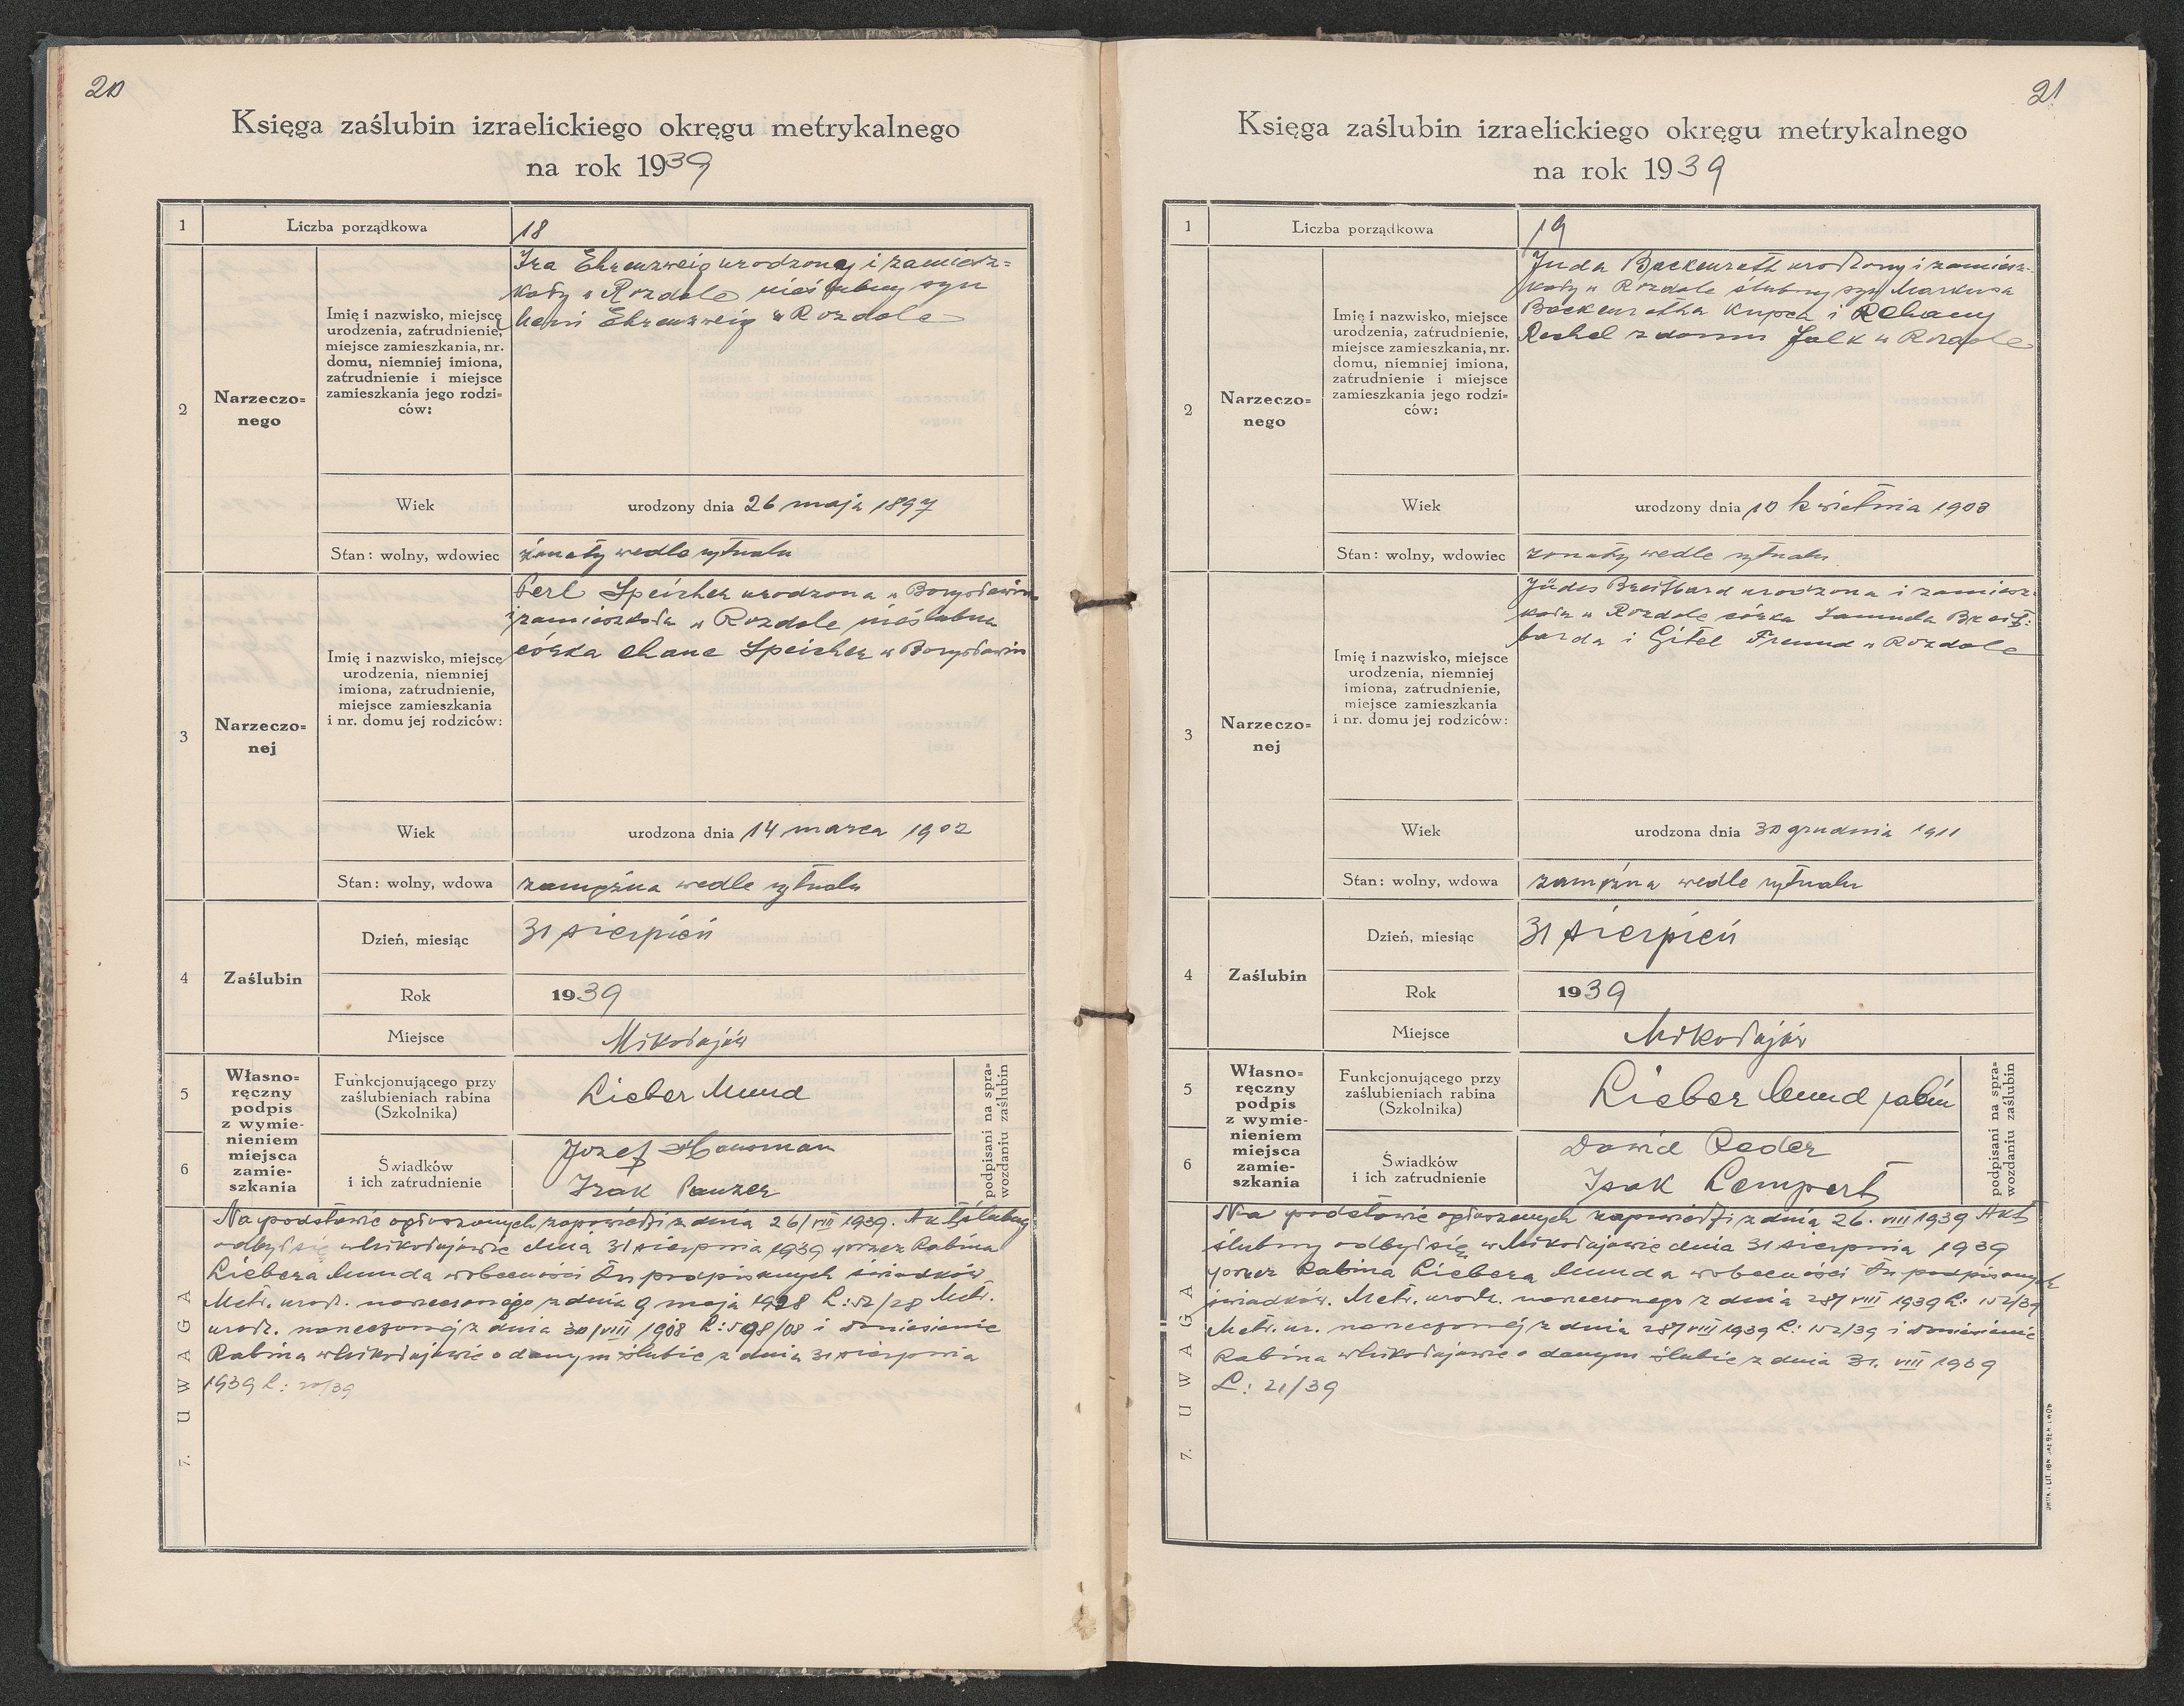 20
Księga zaślubin izraelickiego okręgu metrykalnego
na rok 1939
1
Liczba porządkowa
18
2
Narzeczo=
nego
Imię i nazwisko, miejsce
urodzenia, zatrudnienie,
miejsce zamieszkania, nr.
domu, niemniej imiona,
zatrudnienie i miejsce
zamieszkania jego rodzi-
ców:
Ehrenzweig urodzony i zamiesz=
kały w Rozdole nieślubny syn
Ehrenzweig w Rozdole
Wiek
urodzony dnia 26 maja 1897
Stan: wolny, wdowiec
żonaty wedle rytuału
3
Narzeczo=
nej
Imię i nazwisko, miejsce
urodzenia, niemniej
imiona, zatrudnienie,
miejsce zamieszkania
i nr. domu jej rodziców:
Perl Speicher urodzona w Borysławiu
i zamieszkała w Rozdole nieślubna
córka Chane Speicher w Borysławiu
Wiek
urodzona dnia 14 marca 1902
Stan: wolny, wdowa
zamężna wedle rytuału
4
Zaślubin
Dzień, miesiąc
31 sierpień
Rok
1939
Miejsce
Mikołajów
5
6
Własno=
ręczny
podpis
z wymie-
nieniem
miejsca
zamie-
szkania
Funkcjonującego przy
zaślubieniach rabina
(Szkolnika)
Lieber Mund
Świadków
i ich zatrudnienie
Józef Hausman
Izak Panzer
podpisani na spra-
wozdaniu zaślubin
7. UWAGA
Na podstawie ogłoszonych zapowiedzi z dnia 26/VIII 1939. Akt ślubny
odbył się w Mikołajowie dnia 31 sierpnia 1939 przez Rabina
Liebera Munda w obecności tu podpisanych świadków
Metr. urodz. narzeczonego z dnia 9 maja 1928 L: 52/28 Metr.
urodz. narzeczonej z dnia 30/VIII 1908 L: 598/08 i doniesienie
Rabina w Mikołajowie o danym ślubie z dnia 31 sierpnia
1939 L: 20/39
21
Księga zaślubin izraelickiego okręgu metrykalnego
na rok 1939
1
Liczba porządkowa
19
2
Narzeczo=
nego
Imię i nazwisko, miejsce
urodzenia, zatrudnienie,
miejsce zamieszkania, nr.
domu, niemniej imiona,
zatrudnienie i miejsce
zamieszkania jego rodzi-
ców:
Juda Backenroth urodzony i zamiesz-
kały w Rozdole ślubny syn Markusa
Backenrotha kupca i Chany
Rechel z domu Falk w Rozdole
Wiek
urodzony dnia 10 kwietnia 1903
Stan: wolny, wdowiec
żonaty wedle rytuału
3
Narzeczo=
nej
Imię i nazwisko, miejsce
urodzenia, niemniej
imiona, zatrudnienie,
miejsce zamieszkania
i nr. domu jej rodziców:
Jüdes Breitbard urodzona i zamiesz-
kała w Rozdole córka Samuela Breit-
barda i Gitel Freund w Rozdole
Wiek
urodzona dnia 30 grudnia 1911
Stan: wolny, wdowa
zamężna wedle rytuału
4
Zaślubin
Dzień, miesiąc
31 sierpień
Rok
1939
Miejsce
Mikołajów
5
6
Własno=
ręczny
podpis
z wymie-
nieniem
miejsca
zamie-
szkania
Funkcjonującego przy
zaślubieniach rabina
(Szkolnika)
Lieber Mund rabin
Świadków
i ich zatrudnienie
Dawid Reder
Isak Lempert
podpisani na spra-
wozdaniu zaślubin
7. UWAGA
Na podstawie ogłoszonych zapowiedzi z dnia 26. VIII 1939 Akt
ślubny odbył się w Mikołajowie dnia 31 sierpnia 1939
przez Rabina Liebera Munda w obecności tu podpisanych
świadków. Metr. urodz. narzeczonego z dnia 28/VIII 1939 L: 152/39
Metr. ur. narzeczonej z dnia 28/VIII 1939 L: 152/39 i doniesienie
Rabina w Mikołajowie o danym ślubie z dnia 31. VIII 1939
L: 21/39
DRUK. I LIT. IGN. JAEGER, LWÓW